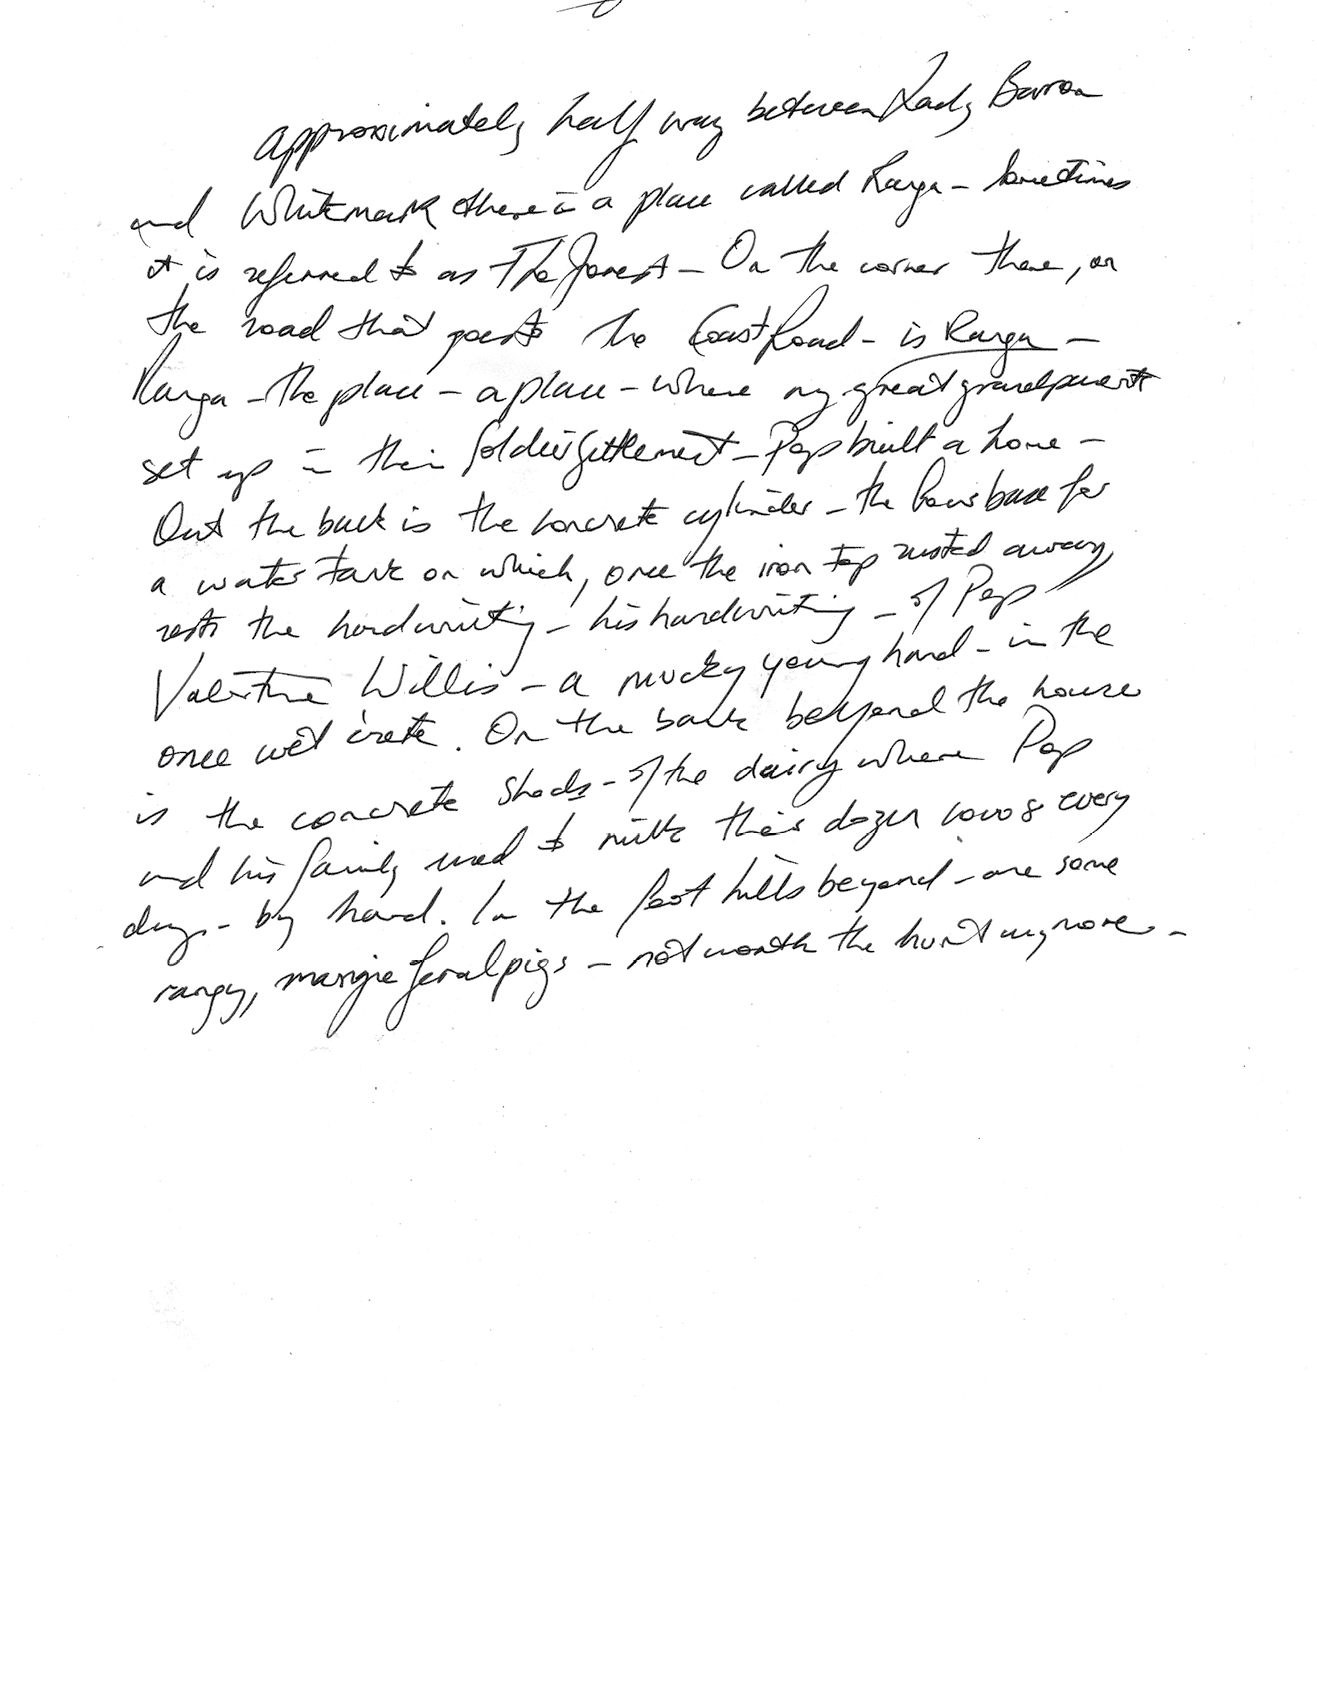 approximately half way between Lady Barron
and Whitemark there is a place called Ranga – Sometimes
it is referred to as The Forest – On the corner there, on
the road that goes to the Coast Road – is Ranga –
Ranga – the place – a place – where my great grandparents
set up in their Soldier Settlement – Pop built a home –
Out the back is the concrete cylinder – the base for
a water tank on which, once the iron top rusted away,
rests the handwriting – his handwriting – of Pop
Valentine Willis – a mucky young hand – in the
once wet crete. On the bank beyond the house
is the concrete sheds – of the dairy where Pop
and his family used to milk their dozen cows every
day – by hand. In the foot hills beyond – are some
rangy, mangie feral pigs – not worth the hunt anymore –